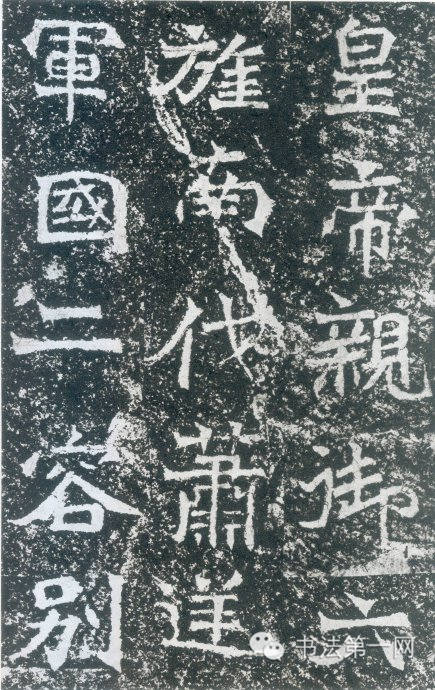 皇帝親御六
旌南伐蕭逆
軍國二容別
书法第一网